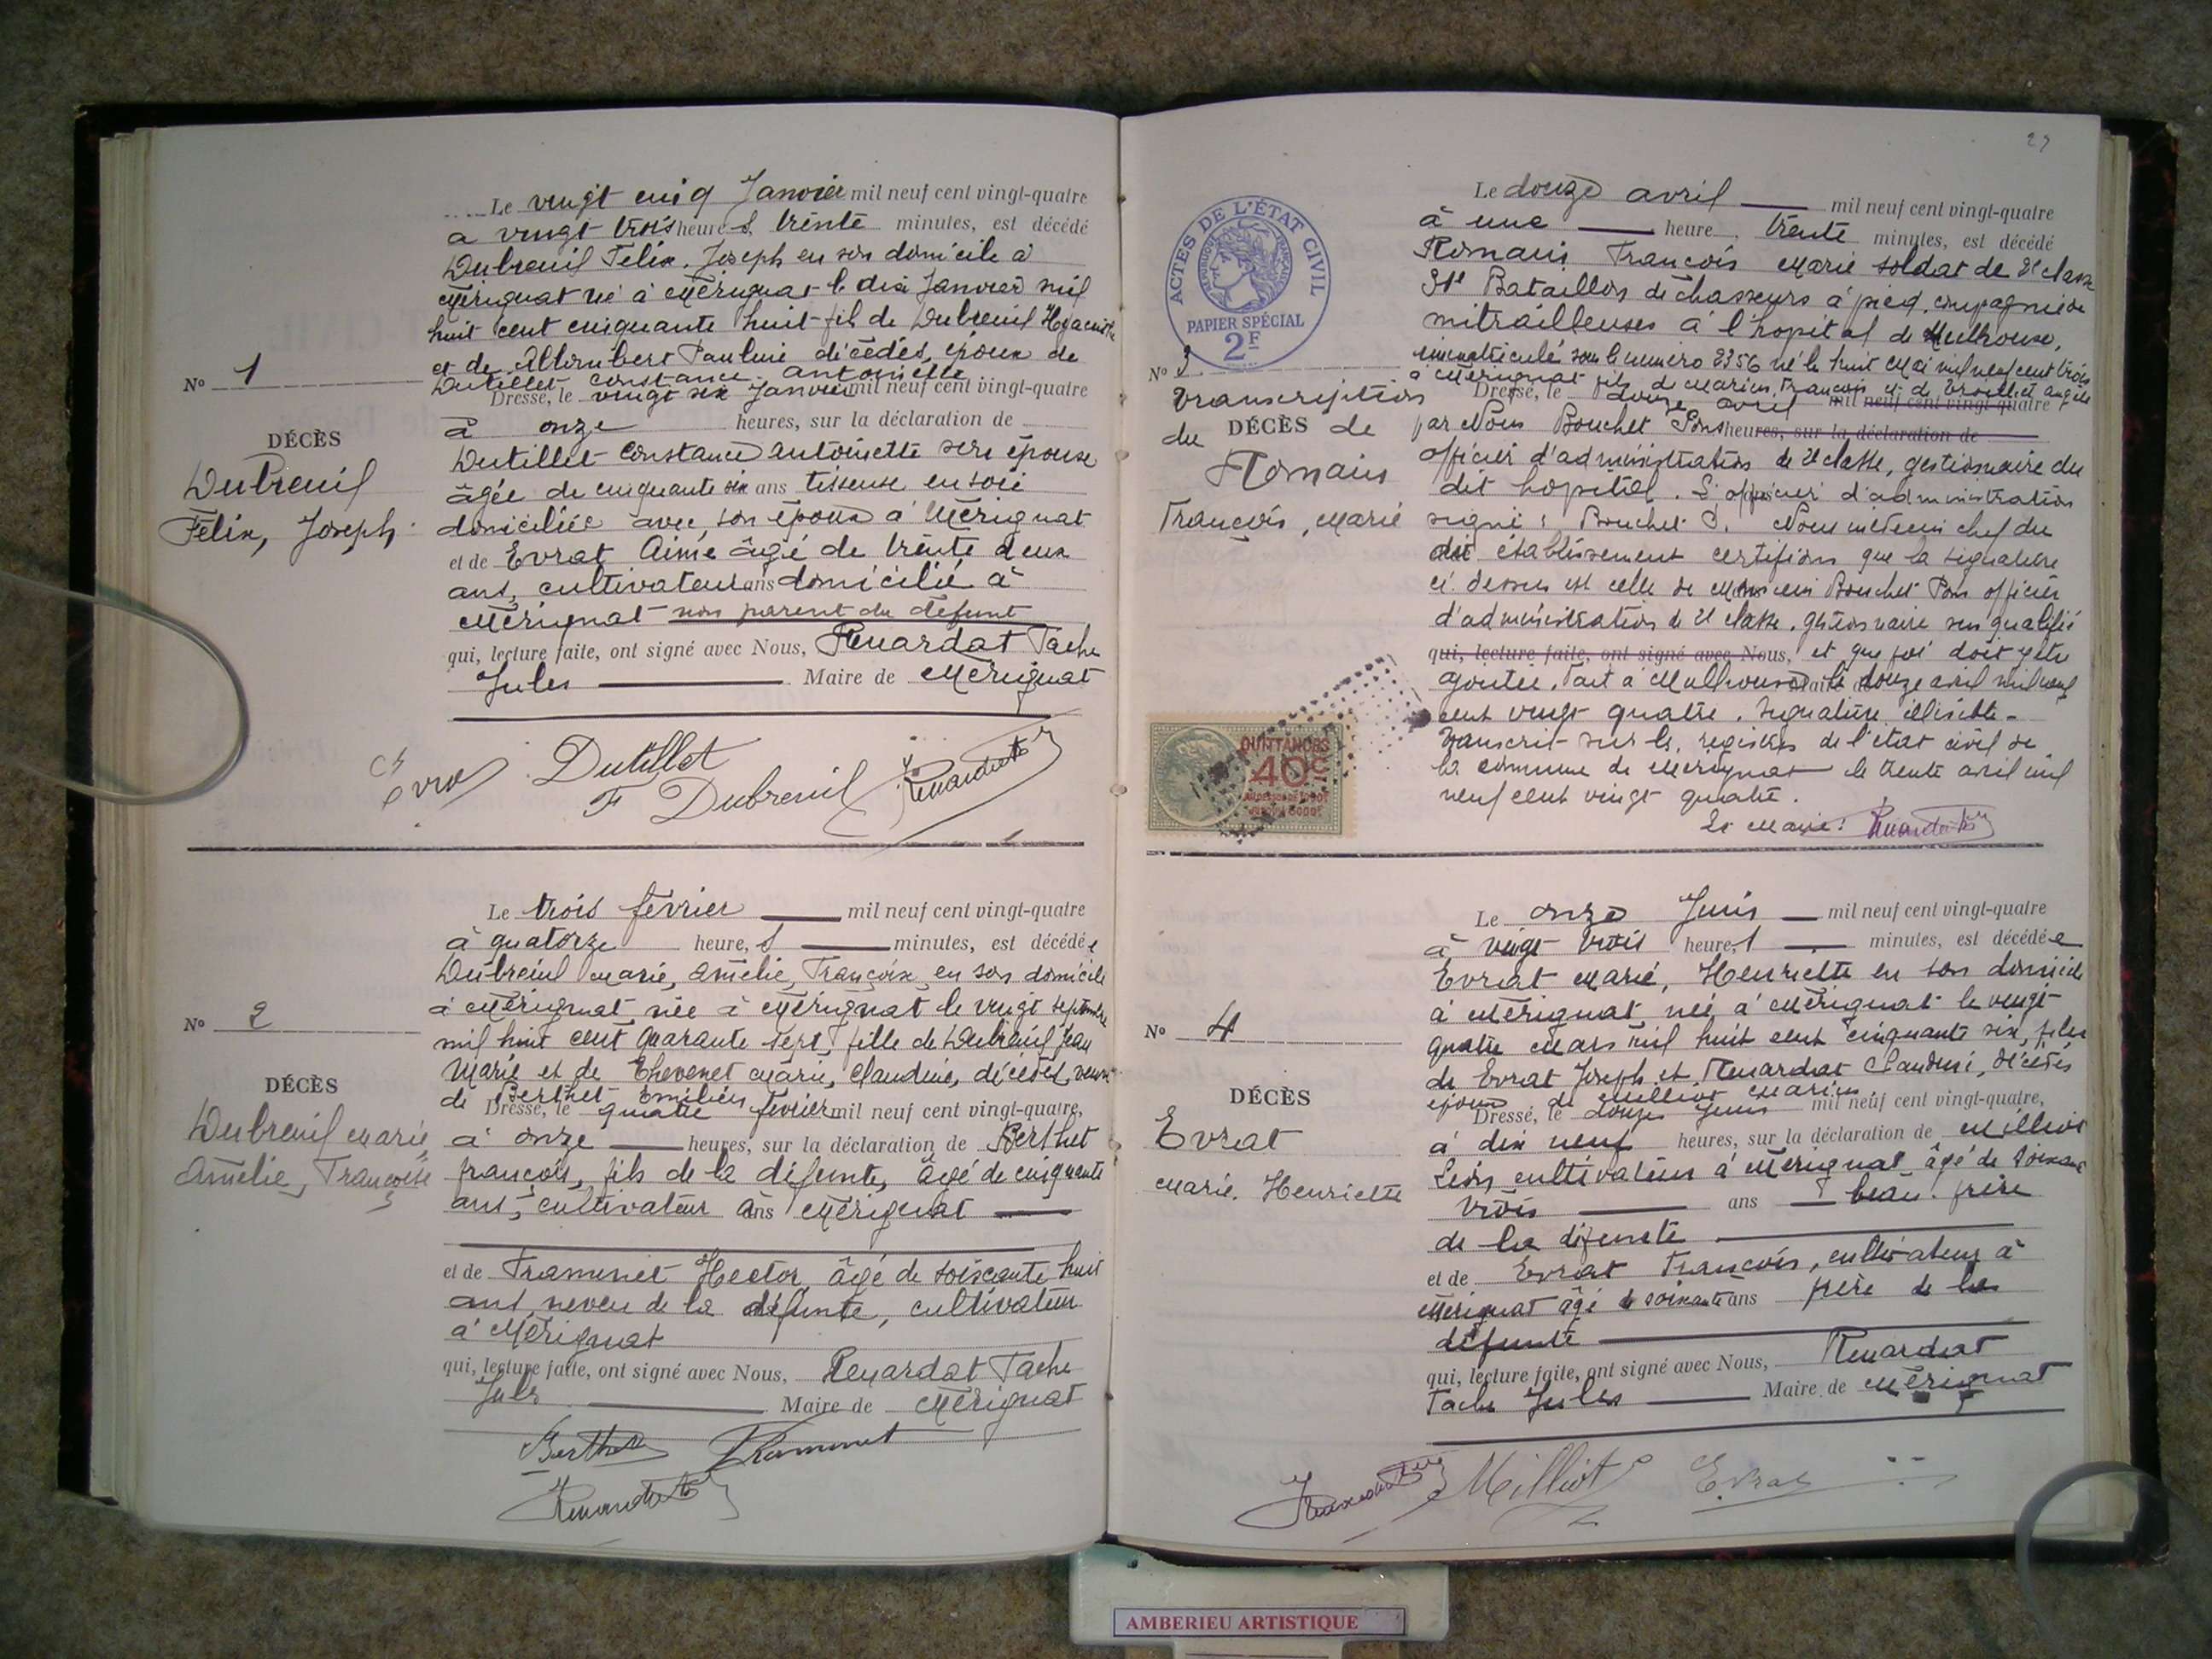 Le vingt cinq Janvier mil neuf cent vingt-quatre
à vingt trois heures, trente minutes, est décédé
Dubreuil Felix, Joseph en son domicile à
Mérignat né à Mérignat le dix Janvier mil
huit cent cinquante huit fils de Dubreuil Hyacinthe
et de Pauline décédés, époux de
Dutillet constance antoinette
Nº 1
DÉCÈS
Dubreuil
Felix, Joseph
Dressé, le vingt six Janvier mil neuf cent vingt-quatre
à onze heures, sur la déclaration de
Dutillet Constance antoinette sern épouse
âgée de cinquante six ans tisseuse en soie
domiciliée avec son époux à Mérignat
et de Evrat Aimé âgé de trente deux
ans, cultivateur ans domicilié à
Mérignat non parent du défunt
qui, lecture faite, ont signé avec Nous, Renardat Tache
Jules Maire de Mérignat
Dutillet
F Dubreuil
Le trois février mil neuf cent vingt-quatre
à quatorze heure, s minutes, est décédée
Dubreuil Marie, Amélie, Françoise en son domicile
à Mérignat née à Mérignat le vingt septembre
mil huit cent quarante sept, fille de Dubreuil Jean
Marie et de Thevenet Marie, Claudine, décédés, veuve
de Berthet Emilien
Nº 2
DÉCÈS
Dubreuil Marie,
Amélie, Françoise
Dressé, le quatre février mil neuf cent vingt-quatre,
à onze heures, sur la déclaration de Berthet
françois, fils de la défunte, âgé de cinquante
ans, cultivateur à ans Mérignat
et de Tramenet Hector âgé de soiscante huit
ans, neveu de la défunte, cultivateur
à Mérignat
qui, lecture faite, ont signé avec Nous, Renardat Tache
Jules Maire de Mérignat
Berthet Tramenet
29
ACTES DE L'ÉTAT CIVIL
RÉPUBLIQUE FRANÇAISE
PAPIER SPÉCIAL
2F
Le douze avril mil neuf cent vingt-quatre
à une heure, trente minutes, est décédé
Romain François Marie soldat de 2e classe
Bataillon de chasseurs à pied, compagnie de
mitrailleuses à l'hopital de Mulhouse,
immatriculé sous le numero 2356 né le huit Mai mil neuf cent trois
à Mérignat fils de Marius, François et de angèle
Nº 3
Transcription
du DÉCÈS de
Romain
François, Marie
Dressé, le douze avril mil neuf cent vingt-quatre
par Nous Bouchet Pons heures, sur la déclaration de
officier d'administration de 2e classe, gestionnaire du
dit hopital. L'officier d'administration
signé: Bouchet P. Nous médecin chef du
dit établissement certifions que la signature
ci-dessus est celle de Monsieur Bouchet Pons officier
d'administration de 2e classe, gestionnaire sus qualifié
qui, lecture faite, ont signé avec Nous, et que foi doit y etre
ajoutée. Fait à Mulhouse Maire de le douze avril mil neuf
cent vingt quatre. Signature illisible.
Transcrit sur les registres de l'état civil de
la commune de Mérignat le trente avril mil
neuf cent vingt quatre.
Le Maire:
QUITTANCES
40c
Le onze Juin mil neuf cent vingt-quatre
à vingt trois heure, s minutes, est décédée
Evrat Marie, Henriette en son domicile
à Mérignat, née à Mérignat le vingt
quatre Mars mil huit cent cinquante six, fille
de Evrat Joseph et Renardat Claudine, décédés
épouse de Milliot Marius
Nº 4
DÉCÈS
Evrat
Marie, Henriette
Dressé, le douze Juin mil neuf cent vingt-quatre,
à dix neuf heures, sur la déclaration de Milliot
Léon cultivateur à Mérignat âgé de soixante
trois ans beau-frère
de la défunte
et de Evrat François, cultivateur à
Mérignat âgé de soixante ans frère de la
défunte
qui, lecture faite, ont signé avec Nous, Renardat
Tache Jules Maire de Mérignat
Milliot Evrat
AMBERIEU ARTISTIQUE